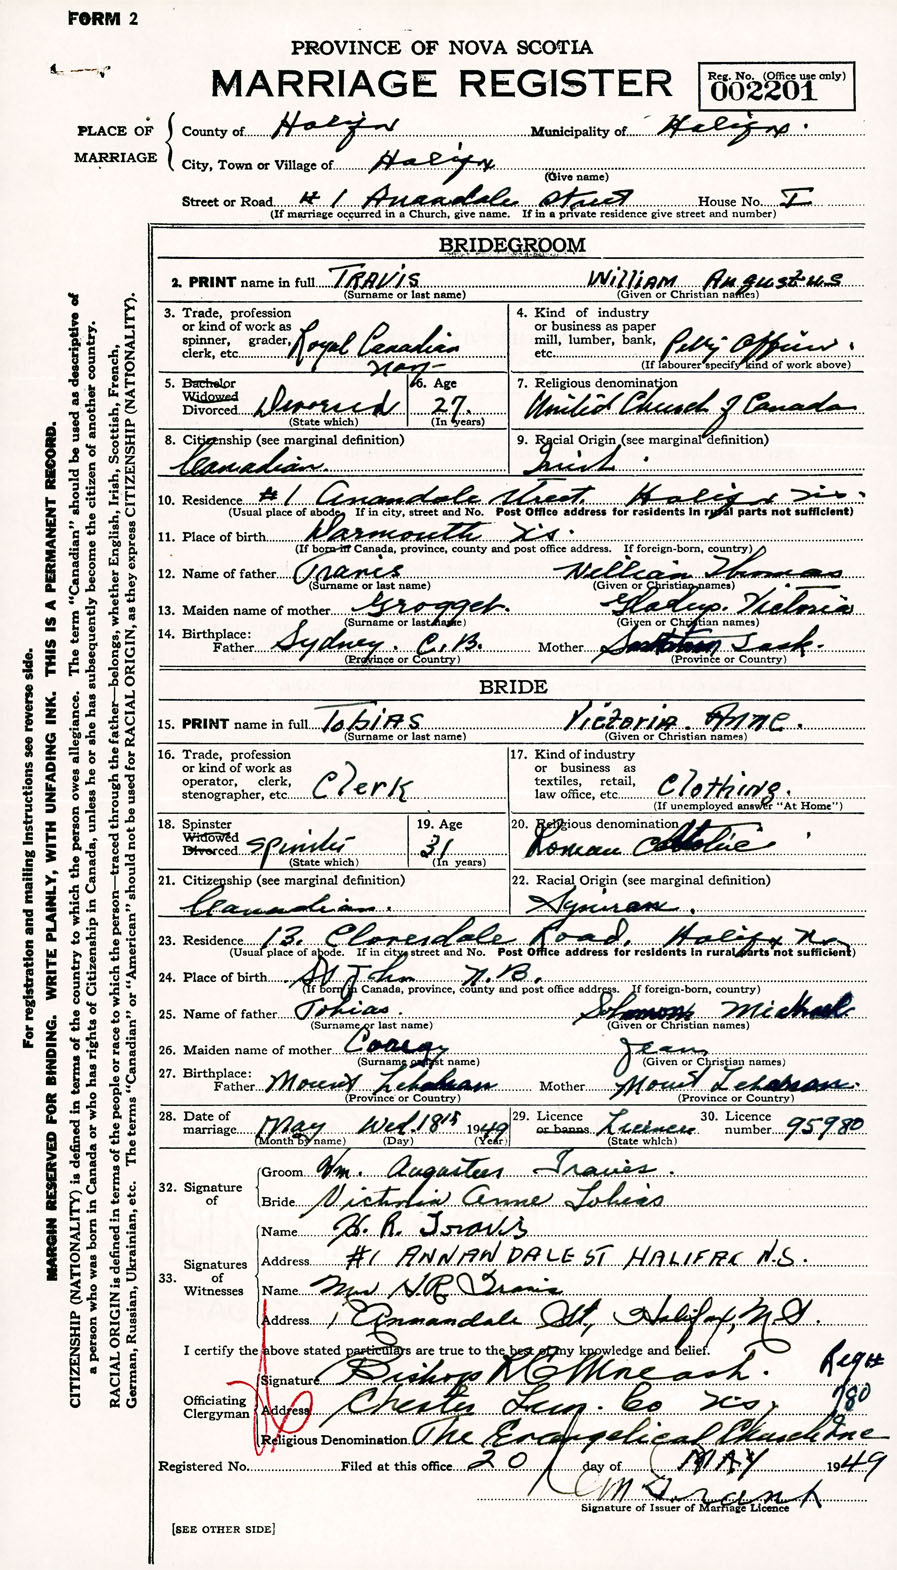 FORM 2
PROVINCE OF NOVA SCOTIA
MARRIAGE REGISTER
Reg. No. (Office use only)
002201
PLACE OF MARRIAGE
County of Halifax Municipality of Halifax.
City, Town or Village of Halifax
(Give name)
Street or Road # 1 Anandale Street House No. I
(If marriage occurred in a Church, give name. If in a private residence give street and number)
BRIDEGROOM
2. PRINT name in full TRAVIS William Augustus
(Surname or last name) (Given or Christian names)
3. Trade, profession or kind of work as spinner, grader, clerk, etc. Royal Canadian Navy
4. Kind of industry or business as paper mill, lumber, bank, etc. Petty Officer.
(If labourer specify kind of work above)
5. Bachelor Widowed Divorced Divorced
(State which)
6. Age 27.
(In years)
7. Religious denomination United Church of Canada
8. Citizenship (see marginal definition) Canadian.
9. Racial Origin (see marginal definition) Irish.
10. Residence #1 Anandale Street. Halifax N.S.
(Usual place of abode. If in city, street and No. Post Office address for residents in rural parts not sufficient)
11. Place of birth Darmouth N.S.
(If born in Canada, province, county and post office address. If foreign-born, country)
12. Name of father Travis William Thomas
(Surname or last name) (Given or Christian names)
13. Maiden name of mother Grogget. Gladys. Victoria
(Surname or last name) (Given or Christian names)
14. Birthplace: Father Sydney. C.B. Mother Saskatoon Sask.
(Province or Country) (Province or Country)
BRIDE
15. PRINT name in full Tobias Victoria Anne.
(Surname or last name) (Given or Christian names)
16. Trade, profession or kind of work as operator, clerk, stenographer, etc. Clerk
17. Kind of industry or business as textiles, retail, law office, etc. Clothing.
(If unemployed answer "At Home")
18. Spinster Widowed Divorced Spinster
(State which)
19. Age 31
(In years)
20. Religious denomination Roman Catholic.
21. Citizenship (see marginal definition) Canadian.
22. Racial Origin (see marginal definition) Syrian.
23. Residence 13. Cloverdale Road, Halifax N.S.
(Usual place of abode. If in city street and No. Post Office address for residents in rural parts not sufficient)
24. Place of birth St John N.B.
(If born in Canada, province, county and post office address. If foreign-born, country)
25. Name of father Tobias. Solomon Michael
(Surname or last name) (Given or Christian names)
26. Maiden name of mother Jean
(Surname or last name) (Given or Christian names)
27. Birthplace: Father Mount Lebanan Mother Mount Lebanan.
(Province or Country) (Province or Country)
28. Date of marriage May Wed. 18th 1949
(Month by name) (Day) (Year)
29. Licence or banns License
(State which)
30. Licence number 95980
32. Signature of
Groom Wm. Augustus Travis.
Bride Victoria Anne Tobias
33. Signatures of Witnesses
Name H. R. Travis
Address #1 ANNAWDALE ST HALIFAX N.S.
Name Mrs H.R. Travis
Address 1 Annandale St., Halifax, N.S.
I certify the above stated particulars are true to the best of my knowledge and belief.
Officiating Clergyman
Signature Bishop
Reg #
780
Address Chester Lun. Co N.S.
Religious Denomination The Evangelical Church Inc
Registered No. Filed at this office 20 day of MAY 1949
Signature of Issuer of Marriage Licence
[SEE OTHER SIDE]
For registration and mailing instructions see reverse side.
MARGIN RESERVED FOR BINDING. WRITE PLAINLY, WITH UNFADING INK. THIS IS A PERMANENT RECORD.
CITIZENSHIP (NATIONALITY) is defined in terms of the country to which the person owes allegiance. The term "Canadian" should be used as descriptive of
a person who was born in Canada or who has rights of Citizenship in Canada, unless he or she has subsequently become the citizen of another country.
RACIAL ORIGIN is defined in terms of the people or race to which the person—traced through the father—belongs, whether English, Irish, Scottish, French,
German, Russian, Ukrainian, etc. The terms "Canadian" or "American" should not be used for RACIAL ORIGIN, as they express CITIZENSHIP (NATIONALITY).